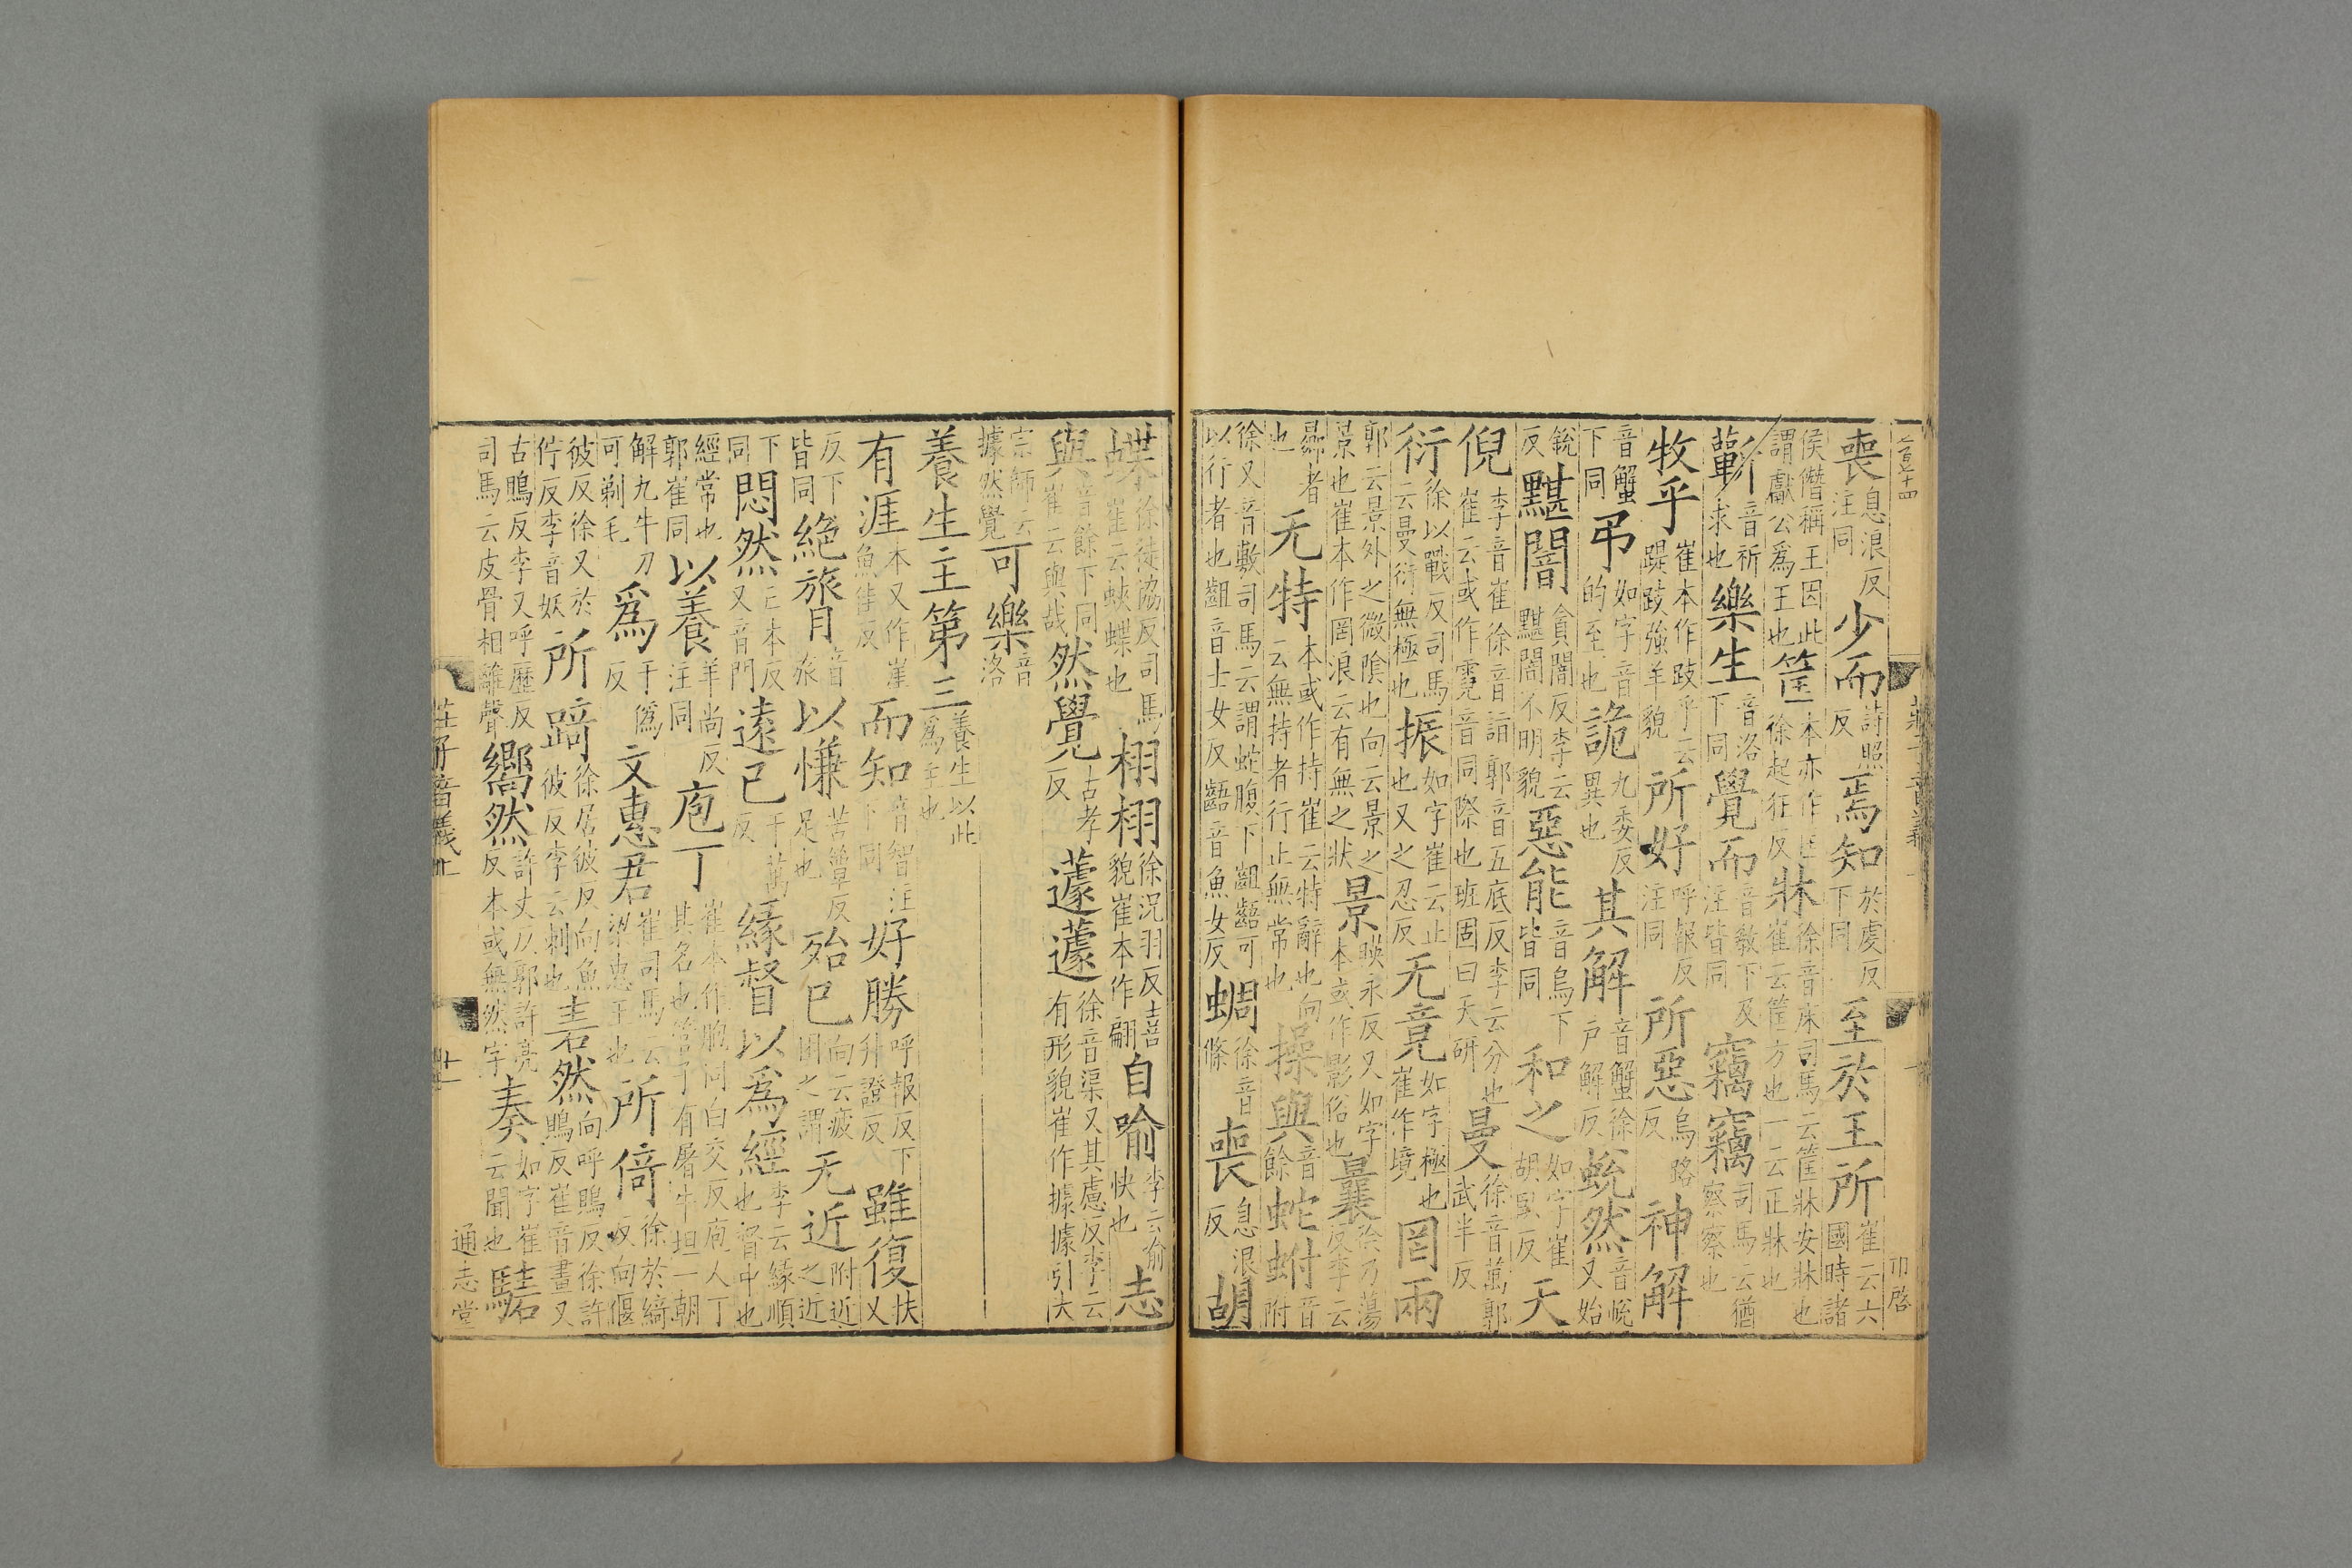 喪息浪反注同少而詩照反焉知於虔反下同至於王所崔云六國時諸
侯僭稱王因此謂獻公爲王也筐本亦作匡徐起狂反牀徐音床司馬云筐牀安牀也崔云筐方也一云正牀也
蘄音祈求也樂生音洛下同覺而音敎下及注皆同竊竊司馬云猶察察也
牧乎崔本作跂乎云踶跂強羊貌所好呼報反注同所惡烏路反神解
音蟹下同弔如字音的至也詭九委反異也其解音蟹徐戶解反蛻然音帨又始
銳反黮闇貪闇反李云黮闇不明貌惡能音烏下皆同和之如字崔胡臥反天
倪李音崔徐音詣郭音五底反李云分也崔云或作霓音同際也班固曰天研曼徐音萬郭武半反
衍徐以戰反司馬云曼衍無極也振如字崔云止也又之忍反无竟如字極也崔作境罔兩
郭云景外之微陰也向云景之景也崔本作罔浪云有無之狀景映永反又如字本或作影俗也曩徐乃蕩反李云
曏者也无特本或作持崔云特辭也向云無持者行止無常也操與音餘蛇蚹音附
徐又音敷司馬云謂蛇腹下齟齬可以行者也齟音士女反齬音魚女反蜩徐音條喪息浪反胡
蝶徐徒協反司馬崔云蛺蝶也栩栩徐況羽反喜貌崔本作翩自喻李云喻快也志
與音餘下同崔云與哉然覺古孝反蘧蘧徐音渠又其慮反李云有形貌崔作據據引大
宗師云據然覺可樂音洛
養生主第三養生以此爲主也
有涯本又作崖魚佳反而知音智注下同好勝呼報反下升證反雖復扶又
反下皆同絶膂音旅以慊苦簟反足也殆已向云疲困之謂无近附近之近
下同悶然亡本反又音門遠己于萬反緣督以爲經李云緣順也督中也
經常也郭崔同以養羊尚反注同庖丁崔本作胞同白交反庖人丁其名也管子有屠牛坦一朝
解九牛刀可剃毛爲于僞反文惠君崔司馬云梁惠王也所倚徐於綺反向偃
彼反徐又於佇反李音妖所踦徐居彼反向魚彼反李云刺也砉然向呼鵙反徐許鵙反崔音畫又
古鵙反李又呼歷反司馬云皮骨相離聲嚮然許丈反郭許亮反本或無然字奏如字崔云聞也騞
莊子音義上
十一
通志堂